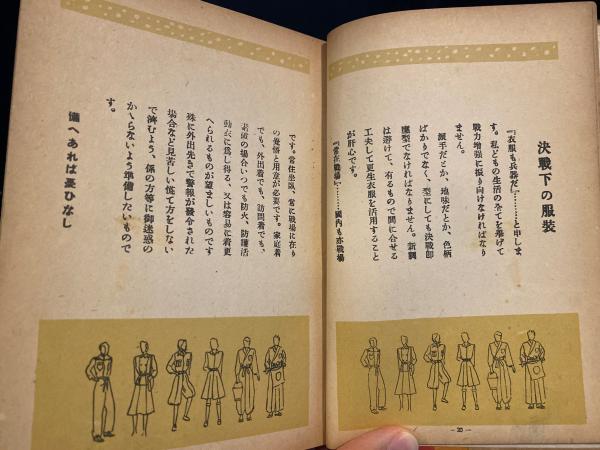 決戰下の服裝
「衣服も兵器だ」………と申しま
す。私どもの生活の全てを擧げて
戰力增强に振り向けなければなり
ません。
派手だとか、地味だとか、色柄
ばかりでなく、型にしても決戰卽
應型でなければなりません。新調
は避けて、有るもので間に合せる
工夫して更生衣服を活用すること
が肝心です。
『常在戰場』………國内も亦戰場
です。常住坐臥、常に戰場に在り
の覺悟と用意が必要です。家庭着
でも、外出着でも、訪問着でも、
素破の場合いつでも防火、防護活
動衣に爲し得る、又は容易に着更
へられるものが望ましいものです
殊に外出先きで警報が發令された
場合など見苦しい慌て方をしない
で濟むよう、係の方等に御迷惑の
かゝらないよう準備したいもので
す。
備へあれば憂ひなし
— 23 —